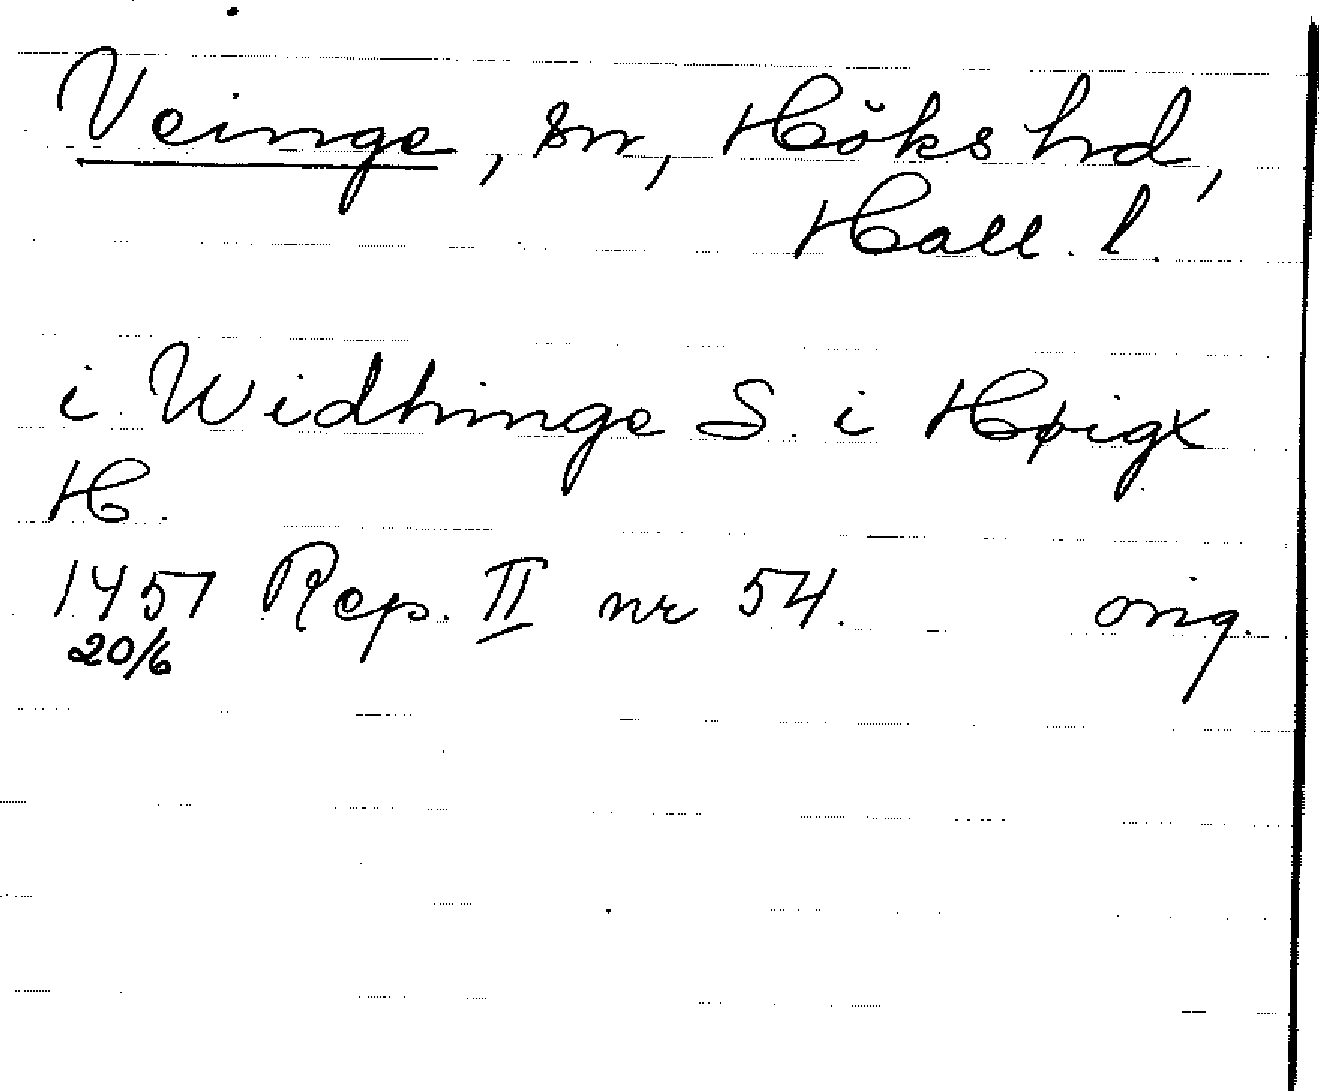 Veinge, sn, Höks hrd,
Hall. l.
i Widhinge S. i Høigx
H.
1451 Rep. II nr 54. orig.
20/6